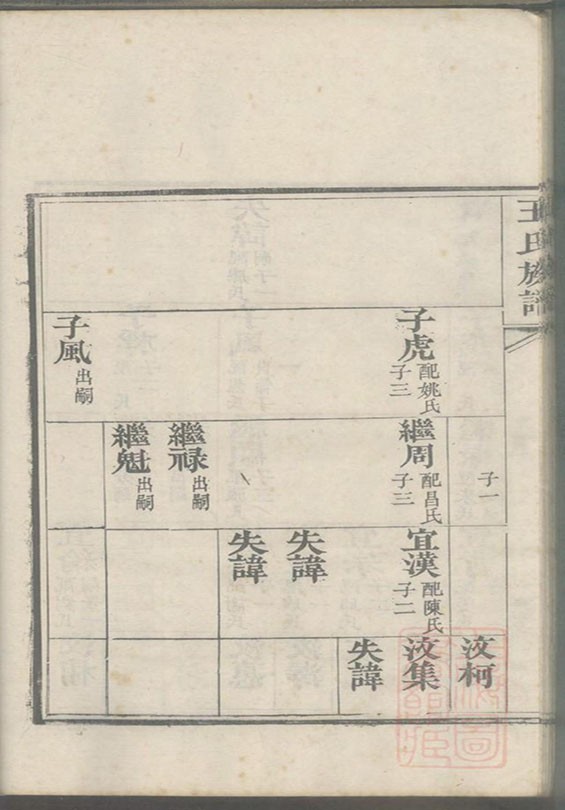 王氏族譜
子虎 配姚氏 子三
子風 出嗣
子一
繼周 配昌氏 子三
繼祿 出嗣
繼魁 出嗣
宜漢 配陳氏 子二
失諱
失諱
汶柯
汶集
失諱